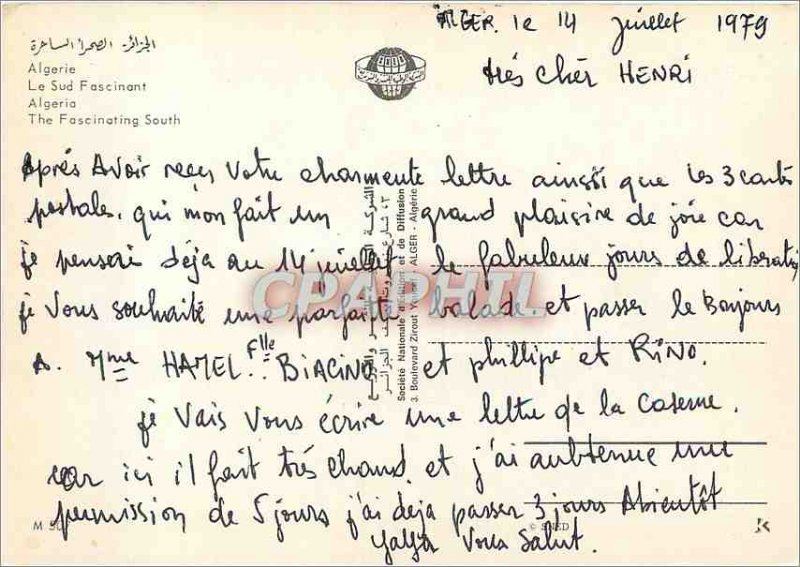 ALGER. le 14 juillet 1979
très chèr HENRI
الجزائر: الصحراء الساحرة
Algerie
Le Sud Fascinant
Algeria
The Fascinating South
Après Avoir reçu votre charmente lettre ainsi que les 3 carts
postales. qui mon fait un grand plaisire de joie car
je pensai déja au 14 juillet le fabuleux jours de liberatio
je vous souhaité une parfaite balade. et passer le Bonjours
A. Mme HAMEL. Flle BIACINO et phillipe et RINO.
je vais vous écrire une lettre de la caserne.
car ici il fait trés chaud. et j'ai aubtenue une
permission de 5 jours j'ai deja passer 3 jours Abientôt
yaya Vous Salut.
Société Nationale d'Edition et de Diffusion
3. Boulevard Zirout Youcef ALGER - Algérie
CPAPHIL
M 50
© SNED